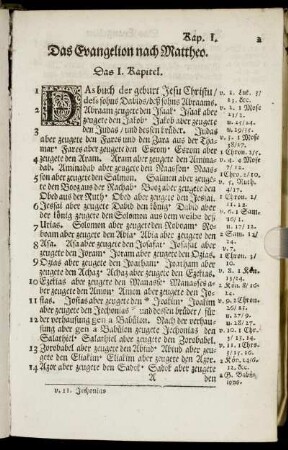 Kap. I. 2
Das Evangelion nach Mattheo.
Das I. Kapitel.
1 DAs buch der geburt Jesu Christi/
des sohns Davids/ des sohns Abraams.
2 Abraam zeugete den Isaak: Isaak aber
zeugete den Jakob: Jakob aber zeugete
3 den Judas/ und dessen brüder. Judas
aber zeugete den Fares und den Zara aus der Tha-
mar: Fares aber zeugete den Esrom: Esrom aber
4 zeugete den Aram. Aram aber zeugete den Aminda-
dab. Aminadab aber zeugete den Naasson: Naas-
5 son aber zeugete den Salmon. Salmon aber zeugete
den Booz aus der Rachab: Booz aber zeugete den
Obed aus der Ruth: Obed aber zeugete den Jessai.
6 Jessai aber zeugete den David den könig: David
aber der könig zeugete den Solomon aus dem weibe des
7 Urias. Solomon aber zeugete den Roboam: Ro-
boam aber zeugete den Abia: Abia aber zeugete den
8 Asa. Asa aber zeugete den Josafat: Josafat aber
zeugete den Joram: Joram aber zeugete den Ozias.
9 Ozias aber zeugete den Joatham: Joatham aber
zeugete den Achaz: Achaz aber zeugete den Ezekias.
10 Ezekias aber zeugete den Manasse: Manasses a-
ber zeugete den Amon: Amon aber zeugete den Jo-
11 sias. Josias aber zeugete den * Joakim: Joakim
aber zeugete den Jechonias und dessen brüder/ für
12 der verhausung gen a Babülon. Nach der verhau-
sung aber gen a Babülon zeugete Jechonias den
Salathiel: Salathiel aber zeugete den Zorobabel.
13 Zorobabel aber zeugete den Abiud: Abiud aber zeu-
gete den Eliakim: Eliakim aber zeugete den Azor.
14 Azor aber zeugete den Sadok: Sadok aber zeugete
A den
v. 1. Luk. 3/
23. &c.
v. 2. 1 Mose
21/2.
u. 25/24.
u. 29/35.
v. 3. 1 Mose
38/27.
1 Chron. 2/
v. 4. 4 Mose
7/12.
1 Chro. 2/10.
v. 5. Ruth.
4/17.
1 Chron. 2/
v. 6. 1 Sam.
16/1.
u. 17/12.
2 Sam. 12/
24.
v. 7.
1 Chron. 3/
v. 8. 1 Kön.
15/24.
v. 11. 1 Chr.
2 Kön.
a G. Babü-
lons.
v. 11. Jechonias